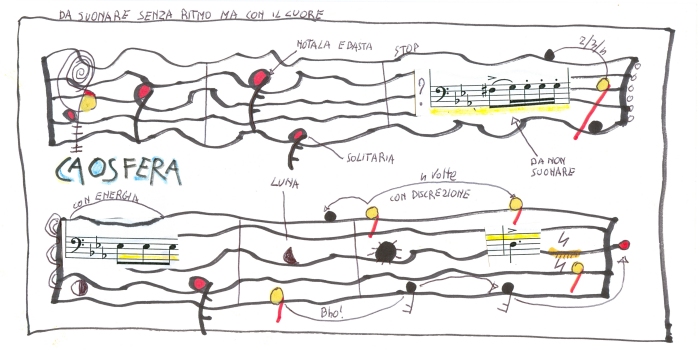 DA SUONARE SENZA RITMO MA CON IL CUORE
NOTALA E BASTA
STOP
2/3/4
?
SOLITARIA
DA NON
SUONARE
CAOSFERA
CON ENERGIA
LUNA
n VOLTE
CON DISCREZIONE
Bho!